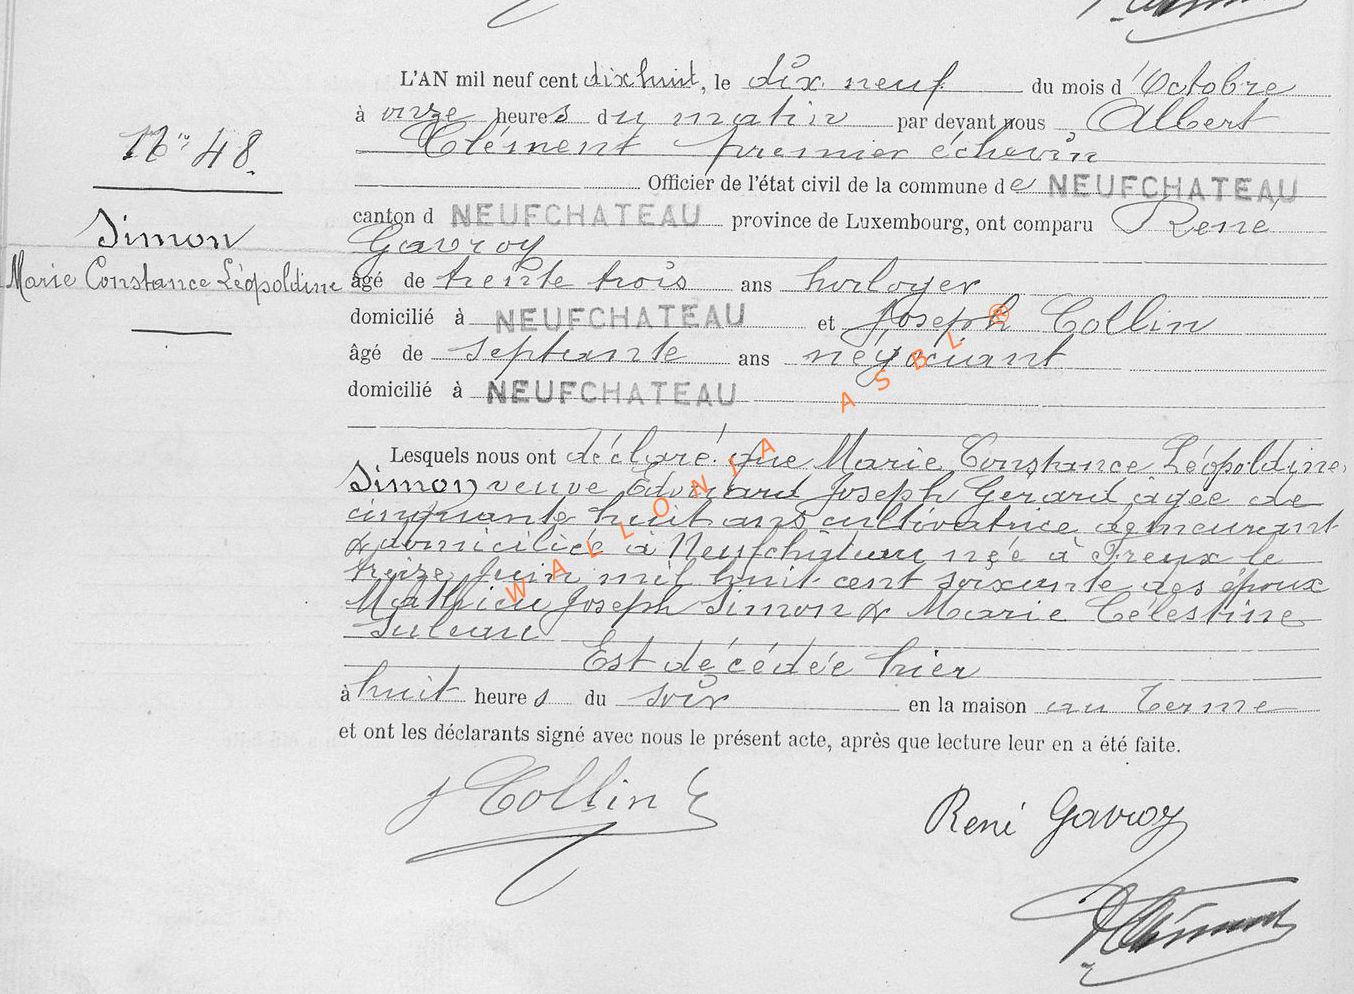 L'AN mil neuf cent dix huit, le dix neuf du mois d'Octobre
à onze heures du matin par devant nous Albert
Nro 48.
Clément premier échevin
Officier de l'état civil de la commune de NEUFCHATEAU
canton d NEUFCHATEAU province de Luxembourg, ont comparu René
Simon
Gavroy
Marie Constance Léopoldine
âgé de trente trois ans horloger
domicilié à NEUFCHATEAU et Joseph Collin
âgé de septante ans négociant
domicilié à NEUFCHATEAU
Lesquels nous ont déclaré que Marie Constance Léopoldine
Simon veuve Edouard Joseph Gérard âgée de
cinquante huit ans cultivatrice demeurant
& domiciliée à Neufchâteau née à Freux le
treize juin mil huit cent soixante des époux
Mathieu Joseph Simon & Marie Célestine
Est décédée hier
à huit heures du soir en la maison au Terme
et ont les déclarants signé avec nous le présent acte, après que lecture leur en a été faite.
J Collin
René Gavroy
AClément
WALLONIA ASBL ®